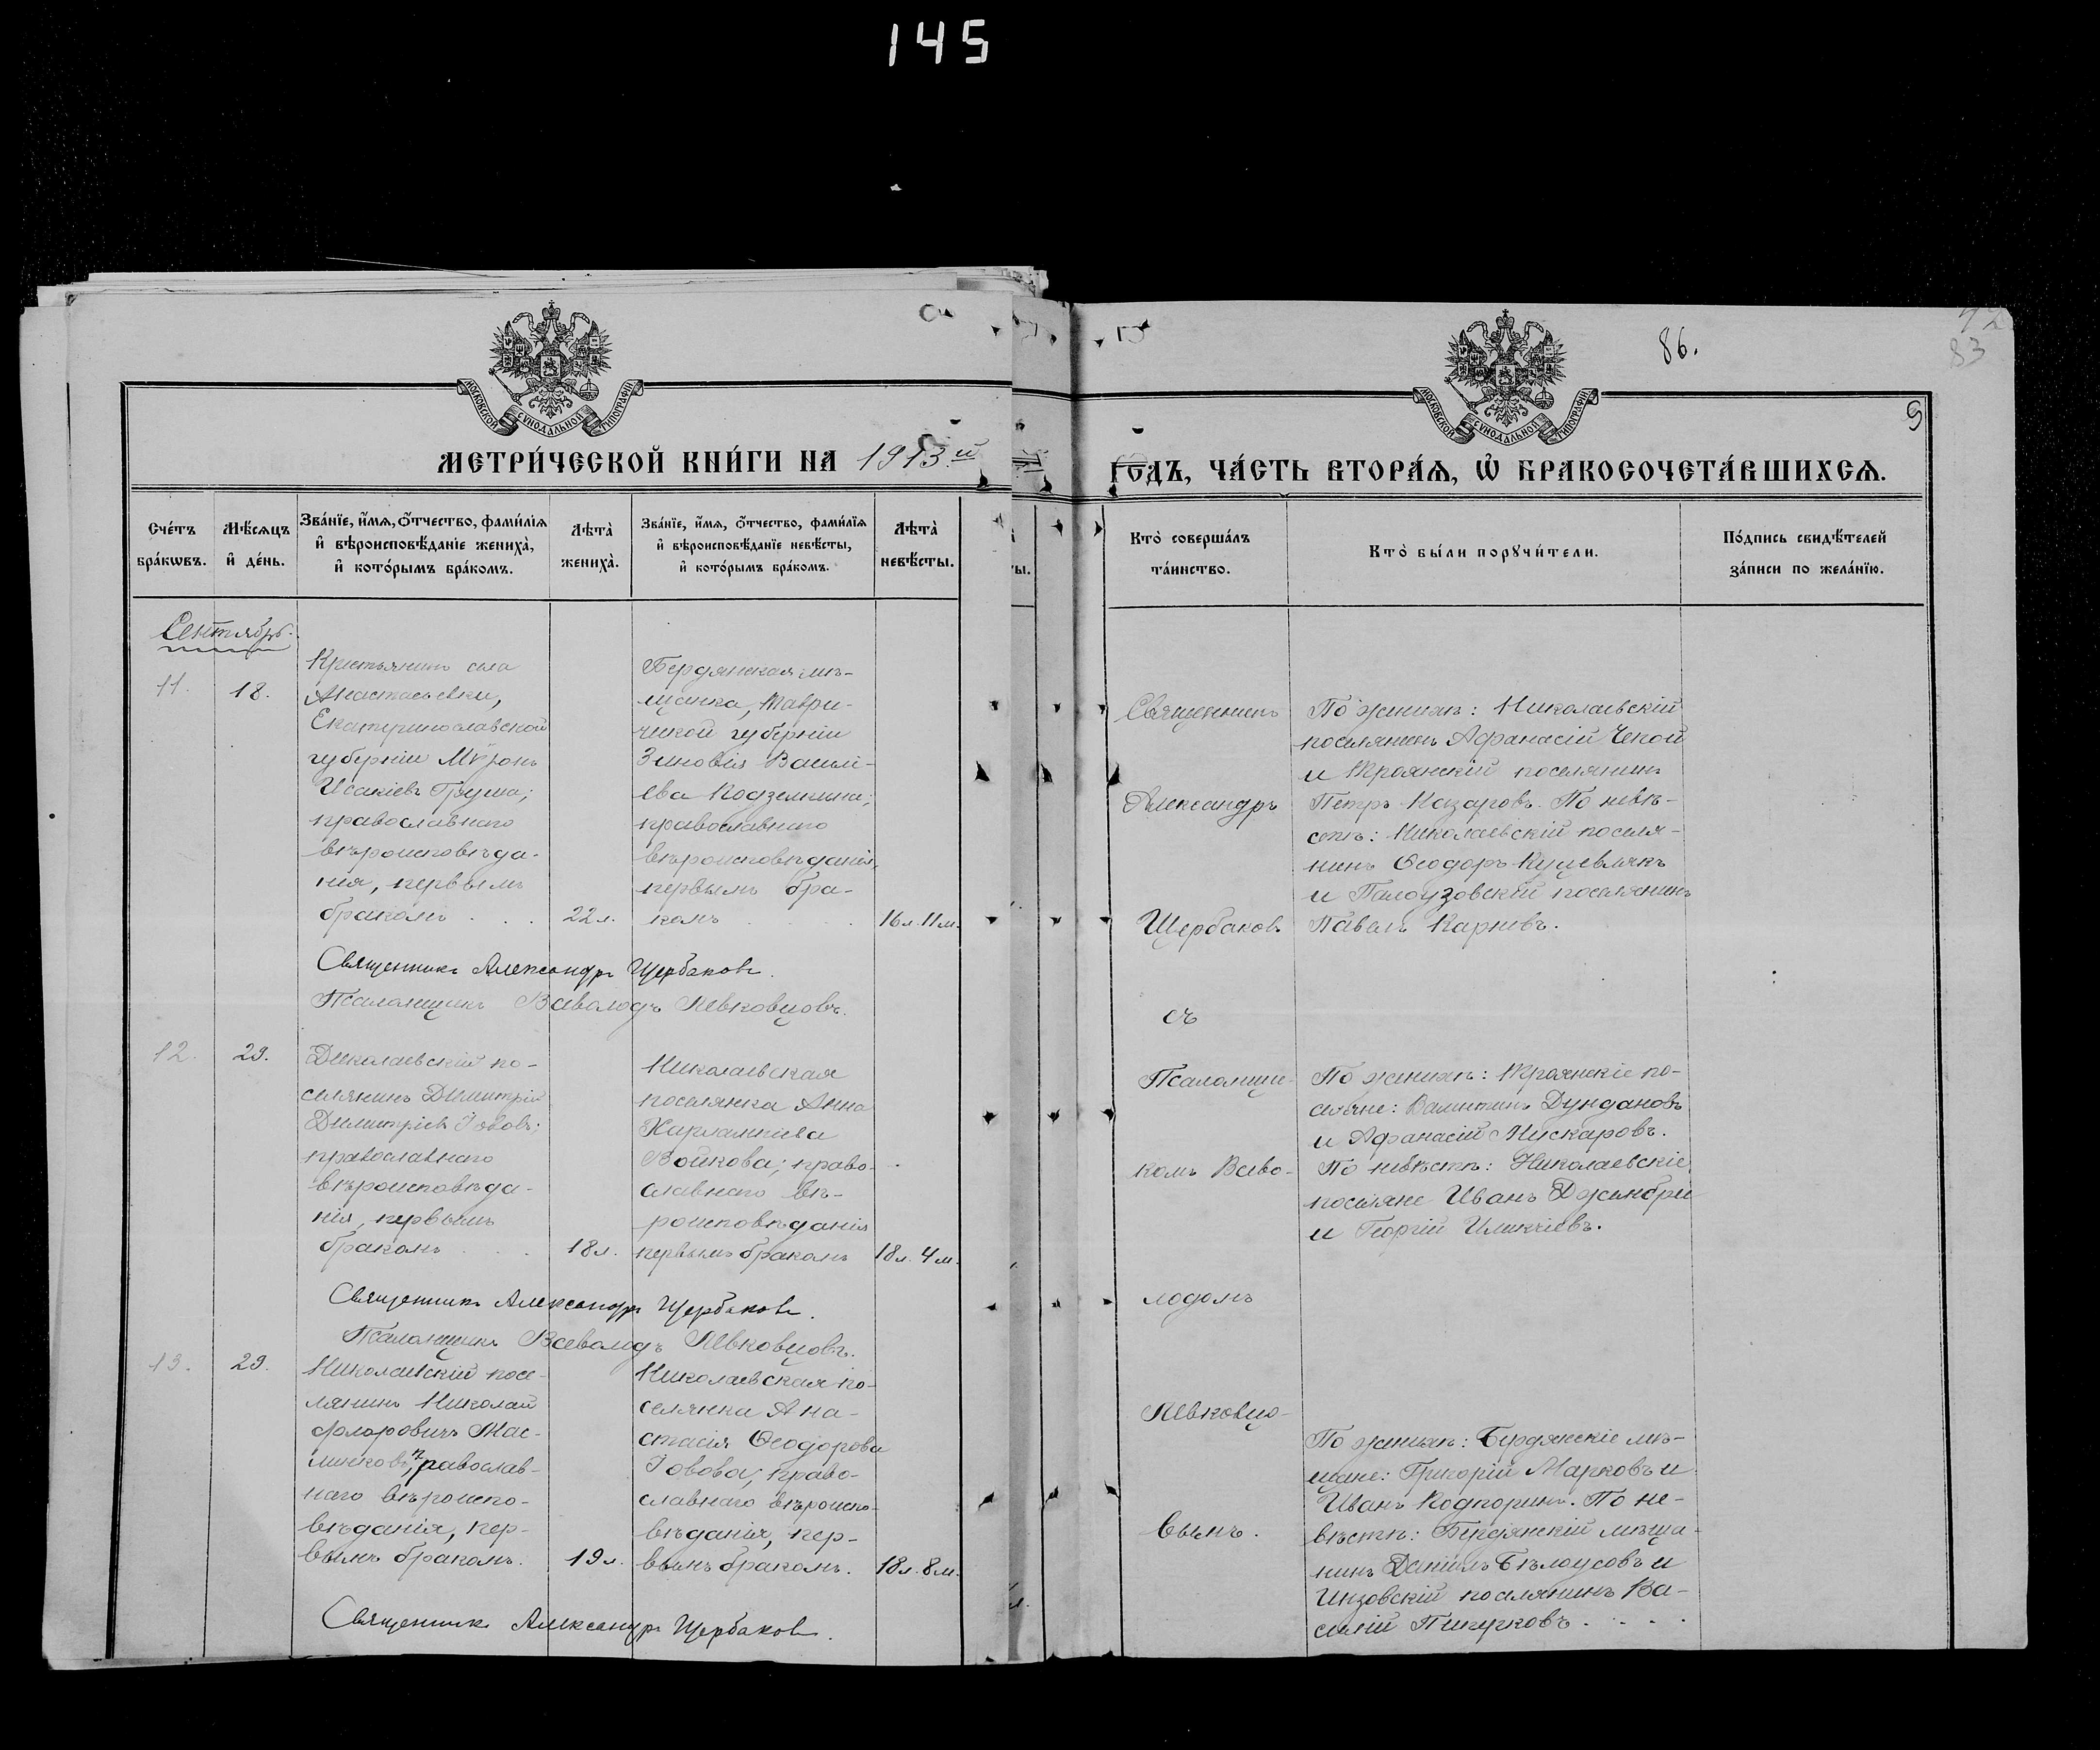 145
86.
83
9
МОСКОВСКОЙ СѴНОДАЛЬНОЙ ТИПОГРАФІИ
МОСКОВСКОЙ СѴНОДАЛЬНОЙ ТИПОГРАФІИ
МЕТРИ́ЧЕСКОЙ КНИ́ГИ НА 1913 й
ГОДЪ, ЧА́СТЬ ВТОРА́Я, Ѡ҆ БРАКОСОЧЕТА́ВШИХСѦ.
Сче́тъ
бра́кѡвъ.
Мѣ́сяцъ
и҆ де́нь.
Зва́нїе, и҆́мя, ѻ҆́тчество, фами́лїя
и҆ вѣроисповѣ́данїе жениха̀,
и҆ кото́рымъ бра́комъ.
Лѣ́та
жениха̀.
Зва́нїе, и҆́мя, ѻ҆́тчество, фами́лїя
и҆ вѣроисповѣ́данїе невѣ́сты,
и҆ кото́рымъ бра́комъ.
Лѣ́та
невѣ́сты.
Кто̀ соверша́лъ
та́инство.
Кто̀ бы́ли порꙋчи́тели.
По́дпись свидѣ́телей
за́писи по жела́нїю.
Сентябрь.
11.
18.
Крестьянинъ села
Анастасьевки,
Екатеринославской
губерніи Мѵронъ
Исакіевъ Груша;
православнаго
вѣроисповѣда-
нія, первымъ
бракомъ . . .
22 л.
Бердянская мѣ-
щанка, Таври-
ческой губерніи
Зиновія Василі-
ева Подземкина;
православнаго
вѣроисповѣданія,
первымъ бра-
комъ . .
16 л. 11 м.
Священникъ Александръ Щербаковъ.
Псаломщикъ Всеволодъ Левковцовъ.
12.
29.
Николаевскій по-
селянинъ Димитрій
Димитріевъ Іововъ;
православнаго
вѣроисповѣда-
нія, первымъ
бракомъ . . .
18 л.
Николаевская
поселянка Анна
Харлампіева
Войкова; право-
славнаго вѣ-
роисповѣданія
первымъ бракомъ
18 л. 4 м.
Священникъ Александръ Щербаковъ.
Псаломщикъ Всеволодъ Левковцовъ.
13.
29.
Николаевскій посе-
лянинъ Николай
Флоровичъ Мас-
линковъ, православ-
наго вѣроиспо-
вѣданія, пер-
вымъ бракомъ.
19 л.
Николаевская по-
селянка Ана-
стасія Ѳеодорова
Іовова; право-
славнаго вѣроиспо-
вѣданія, пер-
вымъ бракомъ.
18 л. 8 м.
Священникъ Александръ Щербаковъ.
Священникъ
Александръ
Щербаковъ
съ
Псаломщи-
комъ Всево-
лодомъ
Левковцо-
вымъ.
По женихѣ: Николаевскій
поселянинъ Афанасій Чекой
и Троянскій поселянинъ
Петръ Казаровъ. По невѣ-
стѣ: Николаевскій поселя-
нинъ Ѳеодоръ Кушевлякъ
и Палоузовскій поселянинъ
Павелъ Карневъ.
По женихѣ: Троянскіе по-
селяне: Валентинъ Дундановъ
и Афанасій Пискаровъ.
По невѣстѣ: Николаевскіе
поселяне Иванъ Джембри
и Георгій Иликчіевъ.
По женихѣ: Бердянскіе мѣ-
щане: Григорій Марковъ и
Иванъ Подпоринъ. По не-
вѣстѣ: Бердянскій мѣща-
нинъ Даніилъ Бѣлоусовъ и
Инзовскій поселянинъ Ва-
силій Пинерковъ . . . .